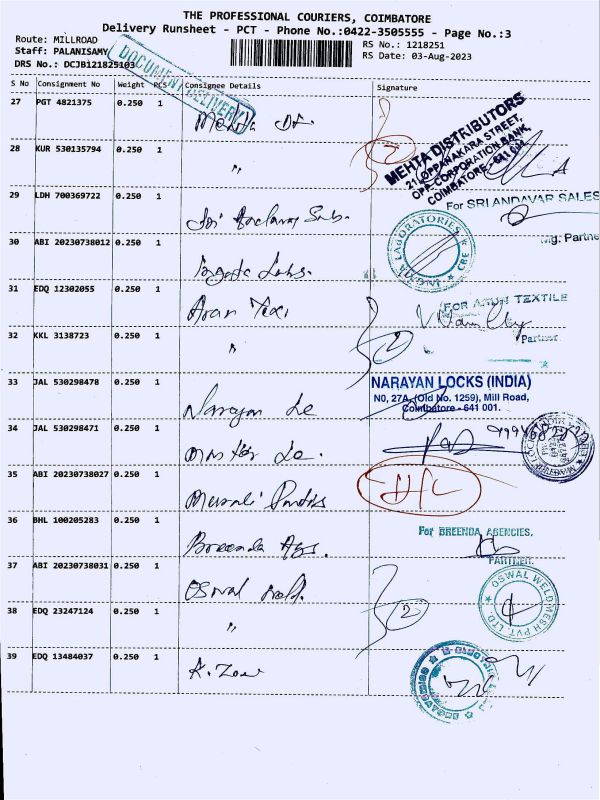 THE PROFESSIONAL COURIERS, COIMBATORE
Delivery Runsheet - PCT - Phone No.:0422-3505555 - Page No.:3
Route: MILLROAD
Staff: PALANISAMY
DRS No.: DCJB121825103
RS No.: 1218251
RS Date: 03-Aug-2023
DOCUMENT DELIVERY
S No Consignment No Weight PCS Consignee Details Signature
27 PGT 4821375 0.250 1 Mehta
MEHTA DISTRIBUTORS
21, OPPANAKARA STREET,
OPP. CORPORATION BANK,
COIMBATORE - 641 001
28 KUR 530135794 0.250 1 "
29 LDH 700369722 0.250 1
For SRI ANDAVAR SALES
Mg. Partne
30 ABI 20230738012 0.250 1 Labs.
LABORATORIES
CBE
31 EDQ 12302055 0.250 1 Arun Tex
FOR ARUN TEXTILE
Partner
32 KKL 3138723 0.250 1 " 2
33 JAL 530298478 0.250 1 Narayan
NARAYAN LOCKS (INDIA)
N0, 27A, (Old No. 1259), Mill Road,
Coimbatore - 641 001.
34 JAL 530298471 0.250 1
35 ABI 20230738027 0.250 1 Murali
36 BHL 100205283 0.250 1 Breenda Ags.
For BREENDA AGENCIES,
PARTNER.
37 ABI 20230738031 0.250 1 Oswal
OSWAL WELDMESH PVT. LTD.
38 EDQ 23247124 0.250 1 " 2
39 EDQ 13484037 0.250 1 K. Zone